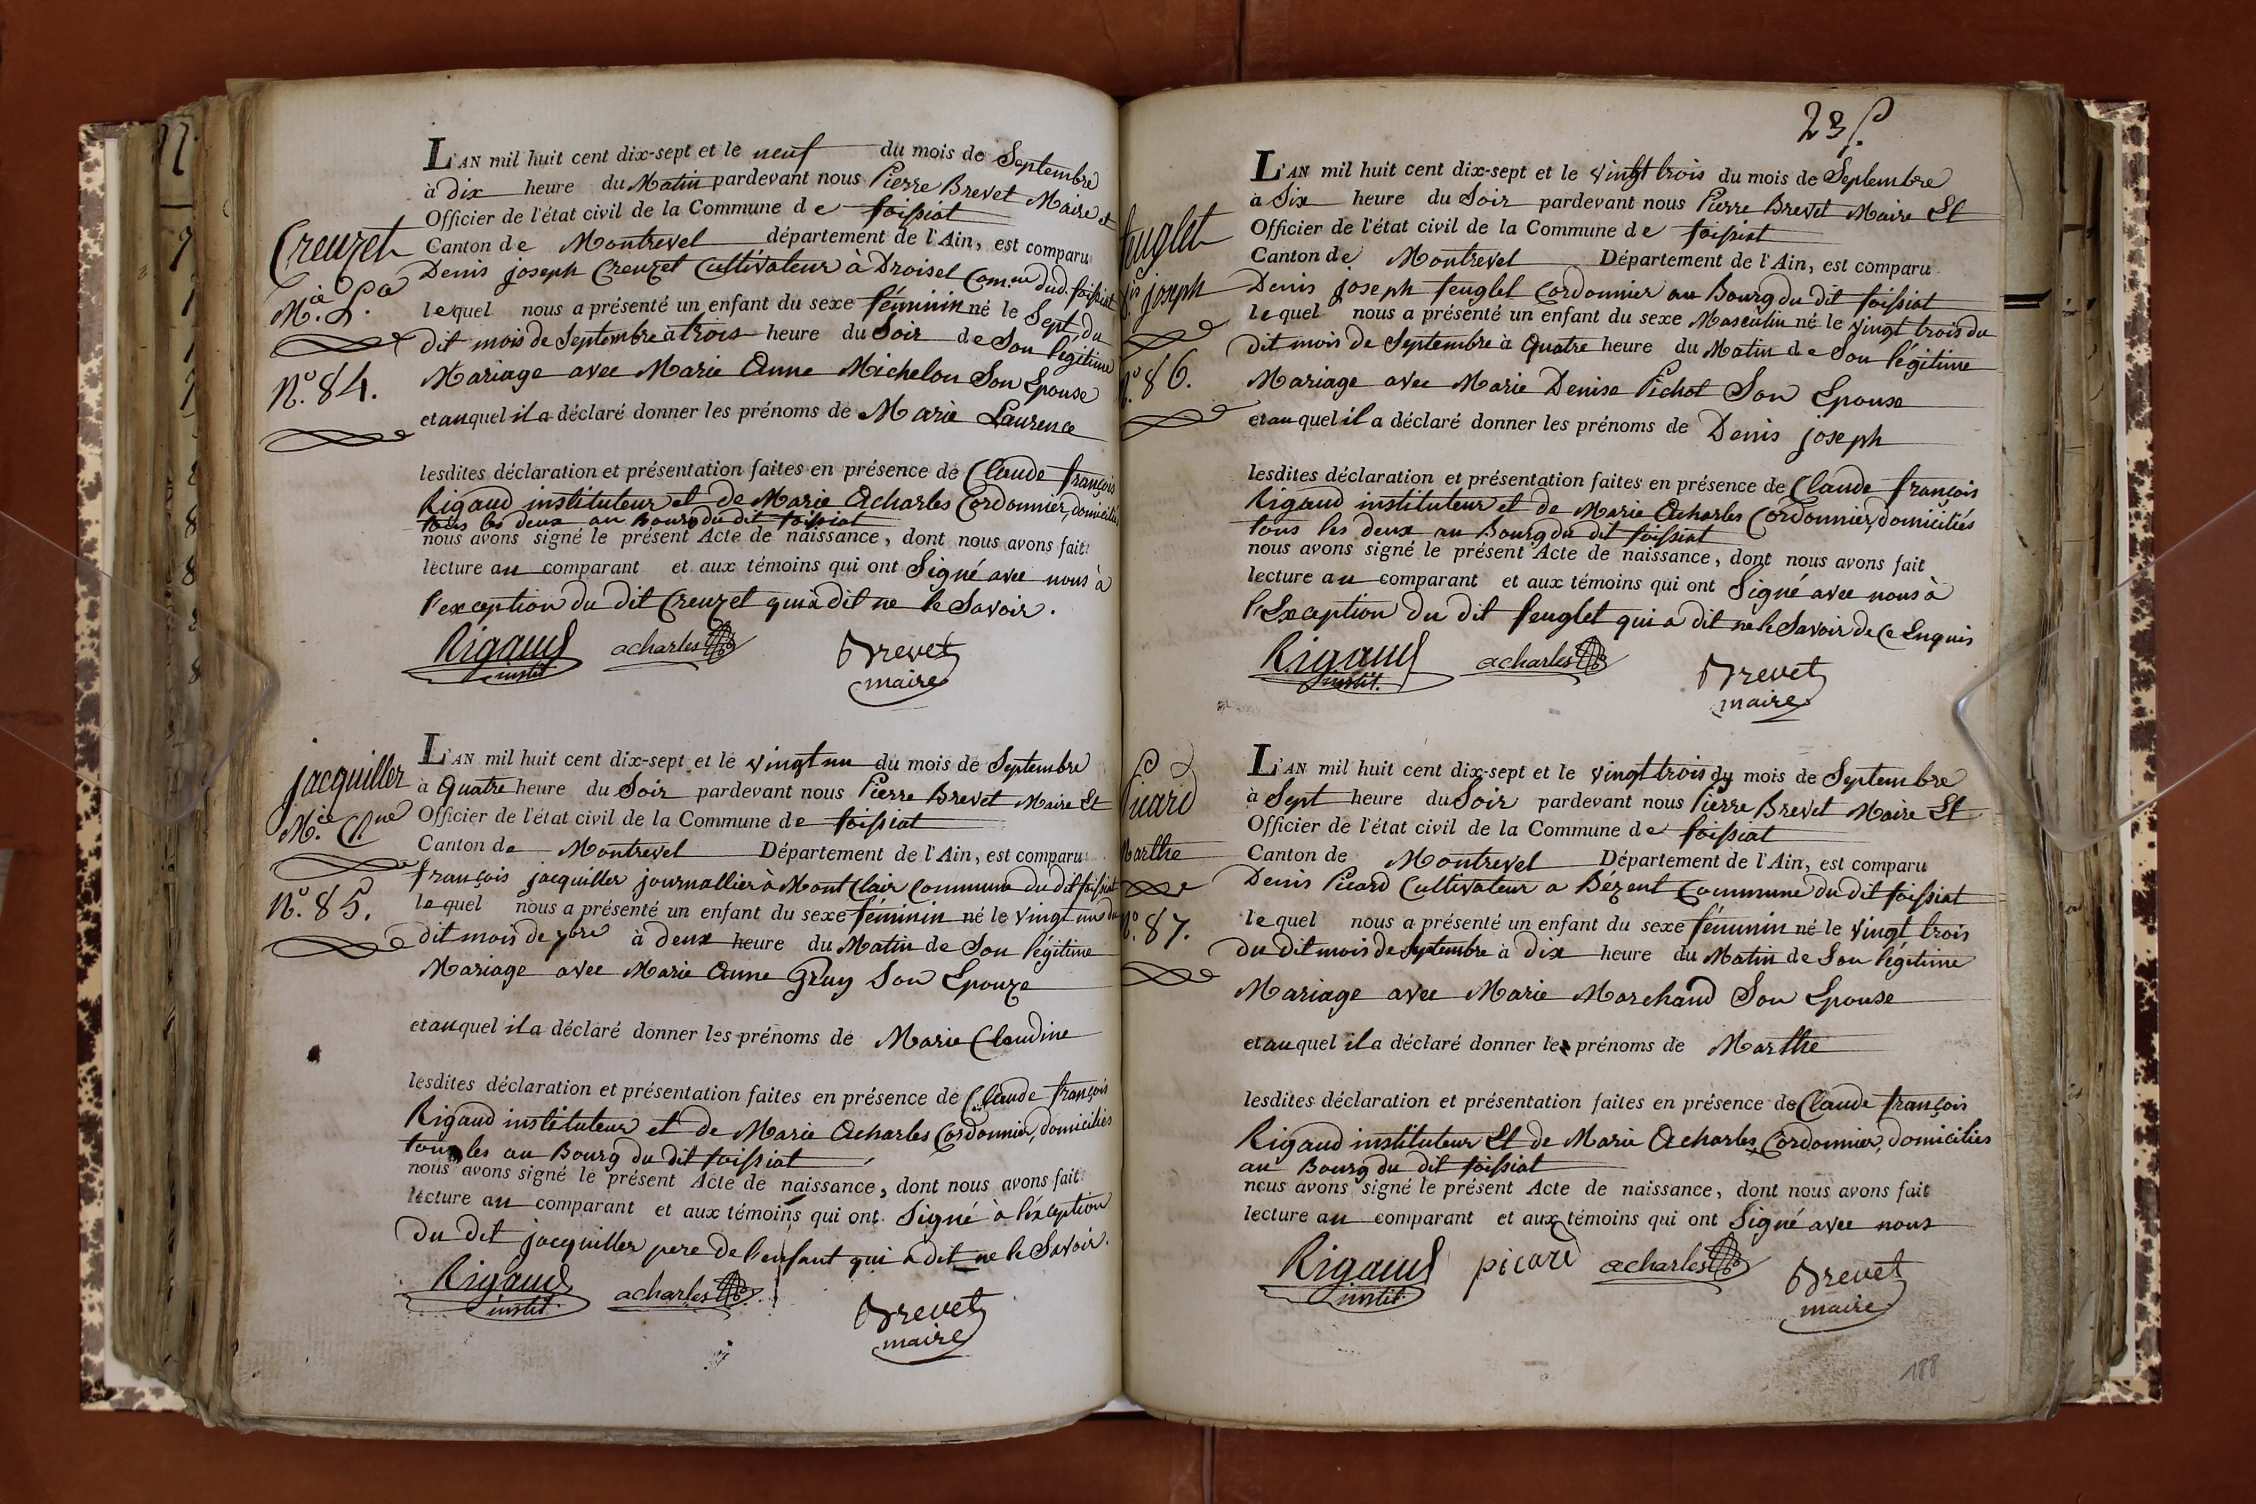 L'AN mil huit cent dix-sept et le neuf du mois de Septembre
à dix heure du Matin pardevant nous Pierre Brevet Maire et
Officier de l'état civil de la Commune de foissiat
Canton de Montrevel département de l'Ain, est comparu
Denis joseph Creuzet Cultivateur à Droisel Com.ne dud. foissiat
lequel nous a présenté un enfant du sexe féminin né le Sept du
dit mois de Septembre à trois heure du Soir de Son légitime
Mariage avec Marie Anne Michelon Son Epouse
et auquel il a déclaré donner les prénoms de Marie Laurence
lesdites déclaration et présentation faites en présence de Claude françois
Rigaud instituteur et de Marie Acharles Cordonnier, domiciliés
tous les deux au Bourg du dit foissiat
nous avons signé le présent Acte de naissance, dont nous avons fait
lecture au comparant et aux témoins qui ont Signé avec nous à
l'exception du dit Creuzet qui a dit ne le Savoir.
Rigaud instit acharles Brevet maire
Creuzet
M.ie L.ce
N.o 84.
L'AN mil huit cent dix-sept et le vingt un du mois de Septembre
à Quatre heure du Soir pardevant nous Pierre Brevet Maire Et
Officier de l'état civil de la Commune de foissiat
Canton de Montrevel Département de l'Ain, est comparu
françois jacquiller journallier à Mont Clair Commune du dit foissiat
lequel nous a présenté un enfant du sexe féminin né le vingt un du
dit mois de 7bre à deux heure du Matin de Son légitime
Mariage avec Marie Anne Gruy Son Epouze
et auquel il a déclaré donner les prénoms de Marie Claudine
lesdites déclaration et présentation faites en présence de Claude françois
Rigaud instituteur et de Marie Acharles Cordonnier, domiciliés
tous les au Bourg du dit foissiat
nous avons signé le présent Acte de naissance, dont nous avons fait
lecture au comparant et aux témoins qui ont Signé à l'éxception
du dit jacquiller pere de l'enfant qui a dit ne le Savoir.
Rigaud instit. acharles Brevet maire
jacquiller
M.ie C.ne
N.o 85.
23
L'AN mil huit cent dix-sept et le vingt trois du mois de Septembre
à Six heure du Soir pardevant nous Pierre Brevet Maire Et
Officier de l'état civil de la Commune de foissiat
Canton de Montrevel Département de l'Ain, est comparu
Denis joseph feuglet Cordonnier au Bourg du dit foissiat
lequel nous a présenté un enfant du sexe Masculin né le vingt trois du
dit mois de Septembre à Quatre heure du Matin de Son légitime
Mariage avec Marie Denise Pichot Son Epouse
et auquel il a déclaré donner les prénoms de Denis joseph
lesdites déclaration et présentation faites en présence de Claude françois
Rigaud instituteur et de Marie Acharles Cordonnier, domiciliés
tous les deux au Bourg du dit foissiat
nous avons signé le présent Acte de naissance, dont nous avons fait
lecture au comparant et aux témoins qui ont Signé avec nous à
l'Exception du dit feuglet qui a dit ne le Savoir de Ce Enquis
Rigaud instit. acharles Brevet maire
feuglet
joseph
N.o 86.
L'AN mil huit cent dix-sept et le vingt trois du mois de Septembre
à Sept heure du Soir pardevant nous Pierre Brevet Maire Et
Officier de l'état civil de la Commune de foissiat
Canton de Montrevel Département de l'Ain, est comparu
Denis Picard Cultivateur a Bézent Commune du dit foissiat
lequel nous a présenté un enfant du sexe féminin né le vingt trois
du dit mois de Septembre à dix heure du Matin de Son légitime
Mariage avec Marie Marchand Son Epouse
et auquel il a déclaré donner les prénoms de Marthe
lesdites déclaration et présentation faites en présence de Claude françois
Rigaud instituteur Et de Marie Acharles, Cordonnier, domiciliés
au Bourg du dit foissiat
nous avons signé le présent Acte de naissance, dont nous avons fait
lecture au comparant et aux témoins qui ont Signé avec nous
Rigaud instit. picard acharles Brevet maire
Picard
Marthe
N.o 87.
188